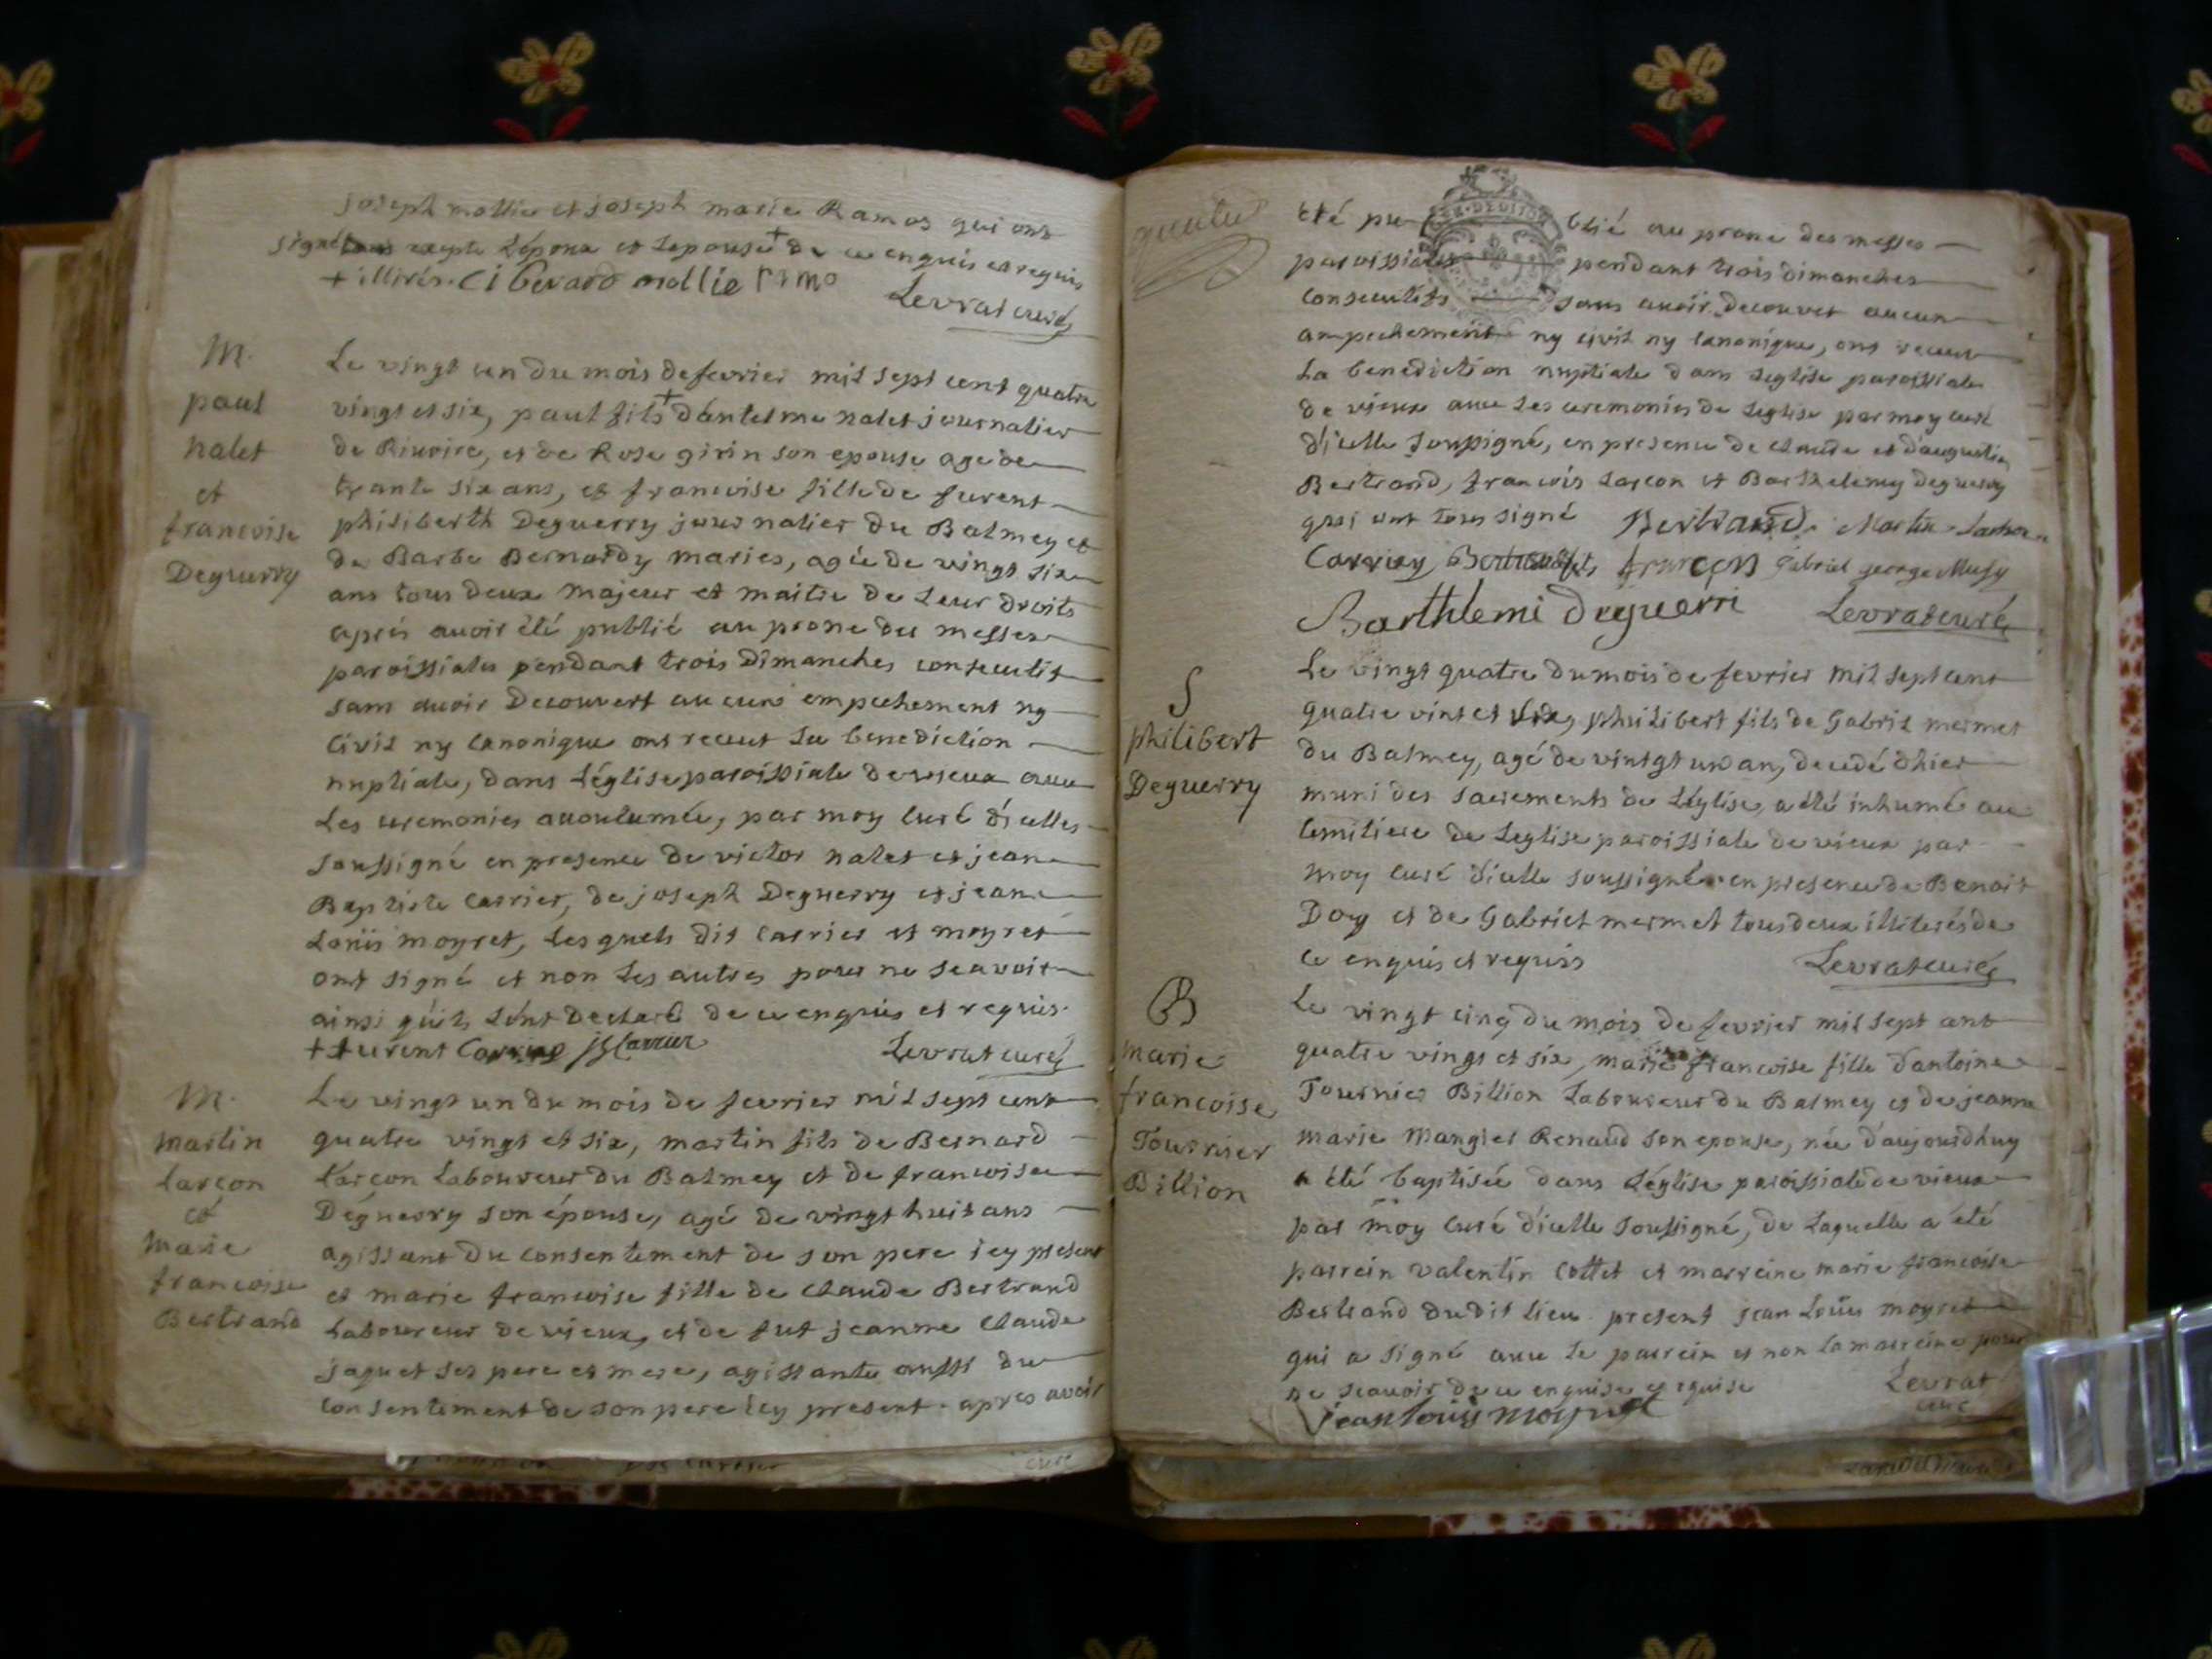 joseph mollie et joseph marie Ramos qui ont
signé excepte L'époux et Lepouse de ce enquis et requis
+ illirés. Ci Berard mollie ramo
Levrat curé
M.
paul
nalet
et
francoise
Deguerry
Le vingt un du mois de fevrier mil sept cent quatre
vingt et six, paul fils + d'antelme nalet journalier
de Rivoire, et de Rose girin son epouse age de
trante six ans, et francoise fille de furent
philiberth Deguerry journalier du Balmey et
de Barbe Bernardy maries, agée de vingt six
ans tous deux majeur et maitre de Leur droits
aprés avoir été publié au prone des messes
paroissiales pendant trois Dimanches consecutif
sans avoir Decouvert aucun empechement ny
Civil ny Canonique ont receut La benediction
nuptiale, dans L'église paroissiale de vieux avec
Les ceremonies accoutumée, par moy Curé d'icelles
soussigné en presence de victor nalet et jean
Baptiste Carrier, de joseph Deguerry et jean
Louis moyret, Lesquels dit Carrier et moyret
ont signé et non Les autres pour ne scavoir
ainsi qu'ils L'ont Declaré de ce enquis et requis.
+ furent Carrier jB Carrier
Levrat curé
M.
martin
Larcon
et
marie
francoise
Bertrand
Le vingt un du mois de fevrier mil sept cent
quatre vingt et six, martin fils de Bernard
Larcon Laboureur du Balmey et de francoise
Déguerry son épouse, agé de vingt huit ans
agissant du consentement de son pere icy present
et marie francoise fille de Claude Bertrand
Laboureur de vieux, et de fut jeanne Claude
jaquet ses pere et mere, agissante aussi du
consentement de son pere icy present. apres avoir
été publié au prone des messes
paroissiales pendant trois dimanches
consecutifs sans avoir decouvet aucun
ampechement ny civil ny canonique, ont receu
La benediction nuptiale dans Leglise paroissiale
de vieux avec Les ceremonies de Leglise par moy curé
d'icelle soussigné, en presence de Claude et d'augustin
Bertrand, francois Larcon et Barthelemy deguerry
qui ont tous signé Bertrand. Martin Larcon
Carrier Bertrand fils, francon Gabriel george Mussy
Barthlemi deguerri Levrat curé
S
philibert
Deguerry
Le vingt quatre du mois de fevrier mil sept cent
quatre vint et six, philibert fils de Gabril mermet
du Balmey, agé de vintgt un an, decedé d'hier
muni des sacrements de L'église, a été inhumé au
Cemitiere de Leglise paroissiale de vieux par
moy curé d'icelle soussigné en presence de Benoit
Doy et de Gabriel mermet tous deux illiterés de
ce enquis et requiss
Levrat curé
B
marie
francoise
Tournier
Billion
Le vingt cinq du mois de fevrier mil sept cent
quatre vingt et six, marie francoise fille d'antoine
Tournier Billion Laboureur du Balmey et de jeanne
marie Mangier Renaud son epouse, née d'aujourdhuy
a été baptisée dans L'église paroissiale de vieux
par moy curé d'icelle soussigné, de Laquelle a été
parrein valentin Cottet et marreine marie francoise
Bertrand dudit Lieu. present jean Louis moyret
qui a signé avec Le parrein et non La marreine pour
ne scavoir de ce enquise et requise
Levrat
curé
jean louis moyret